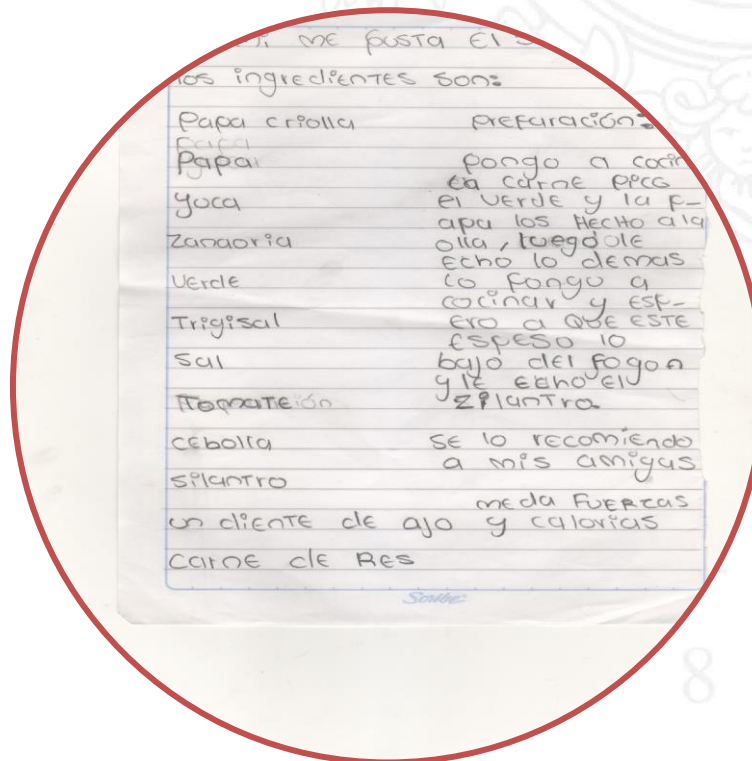 mi ME gUSTA El S
los ingrediENTES SON:
Papa criolla
papa
Papa
yuca
Zanaoria
VErde
Trigisal
Sal
TomaTE
CEbolla
SilanTro
un diENTE dE ajo
CarnE dE RES
PrEparación:
pongo a cocin
la carne pico
el verde y la p-
apa los HECHO ala
olla, luego le
Echo lo demas
lo pongo a
cocinar y ESp-
Ero a QUE ESTE
ESpESO lo
bajo dEl fogon
y le echo El
zilanTro
SE lo rEcomiEndo
a mis amigas
me da FUERzas
y calorias
Scribe
8